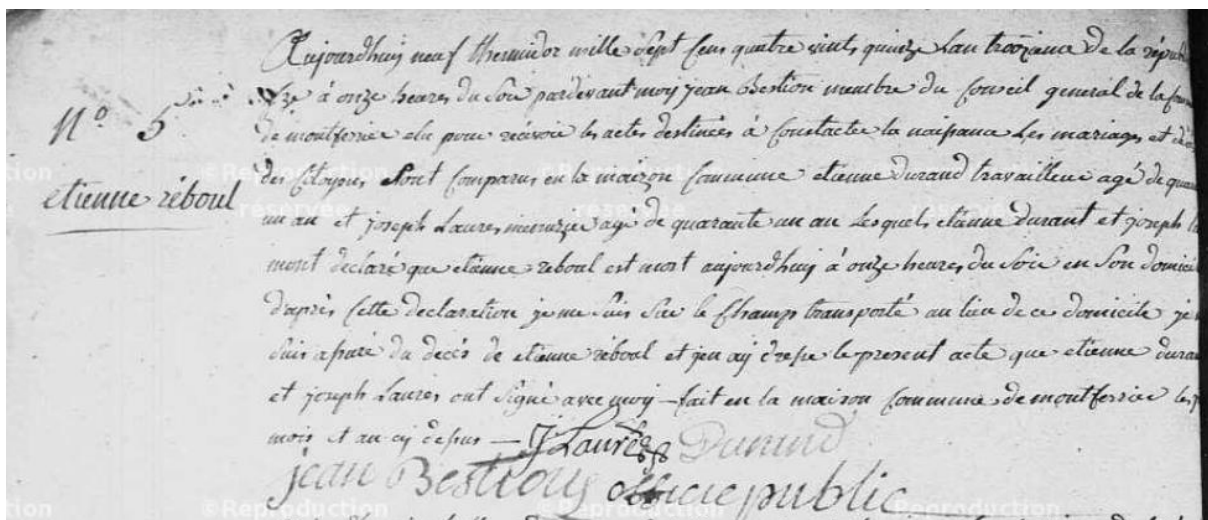 Aujourdhuy neuf thermidor mille Sept Cens quatre vints quinze Lan troizieme de la répub
à onze heures du Soir pardevant moy jean Bestion membre du Conseil general de la Com
N° 5
de montferrier elu pour récévoir les actes destinées à Constater la naissance Les mariages et décès
des Citoyens Sont Comparus en la maizon Commune etienne durand travailleur agé de quaran
etienne réboul
un an et joseph Laures menuzier agé de quarante un an Lesquels etienne durant et joseph La
mont declaré que etienne reboul est mort aujourdhuy à onze heures du Soir en Son domicile
d'aprés Cette declaration je me Suis Sur le Champs transporté au lieu de ce domicile je m
Suis assuré du decés de etienne réboul et jen ay dressé le present acte que etienne duran
et joseph Laures ont Signé avec moy - fait en la maison Commune de montferrier les j
mois et an cy dessus - J Laurés Durand
jean Bestion officie public
©Reproduction réservée